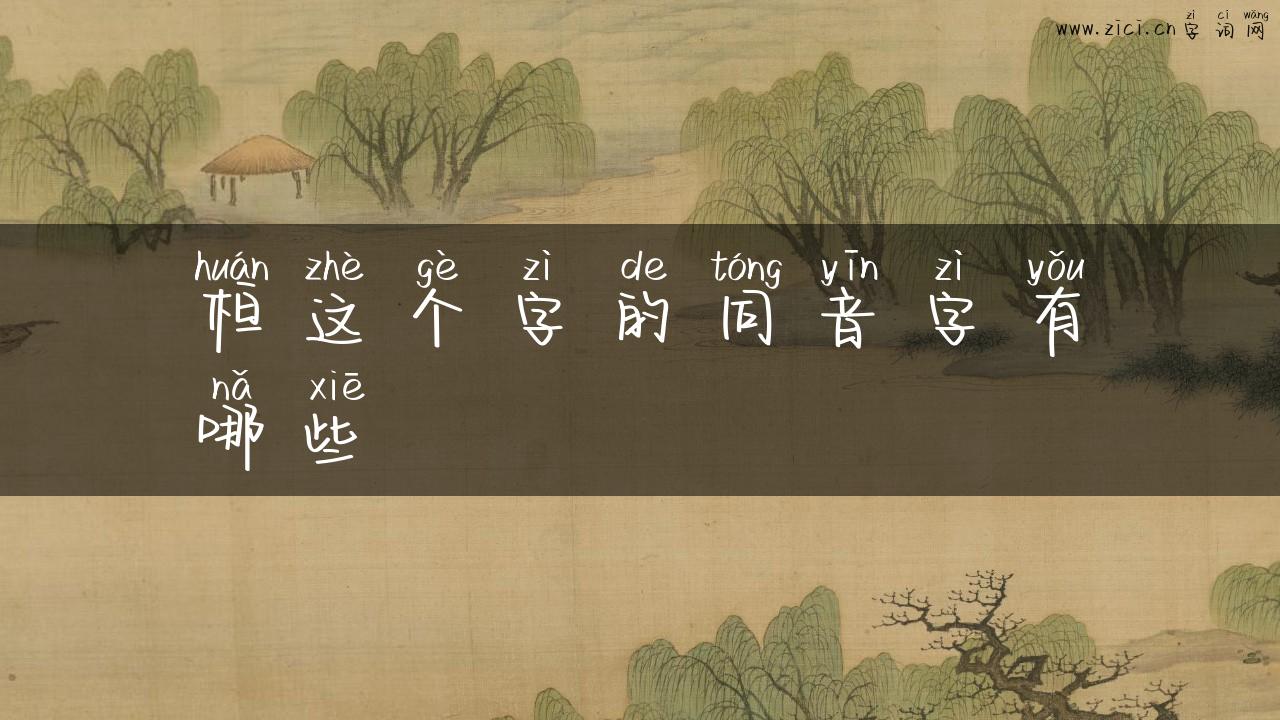 zì cí wǎng
www.zici.cn 字 词 网
huán zhè gè zì de tóng yīn zì yǒu
桓 这 个 字 的 同 音 字 有
nǎ xiē
哪 些